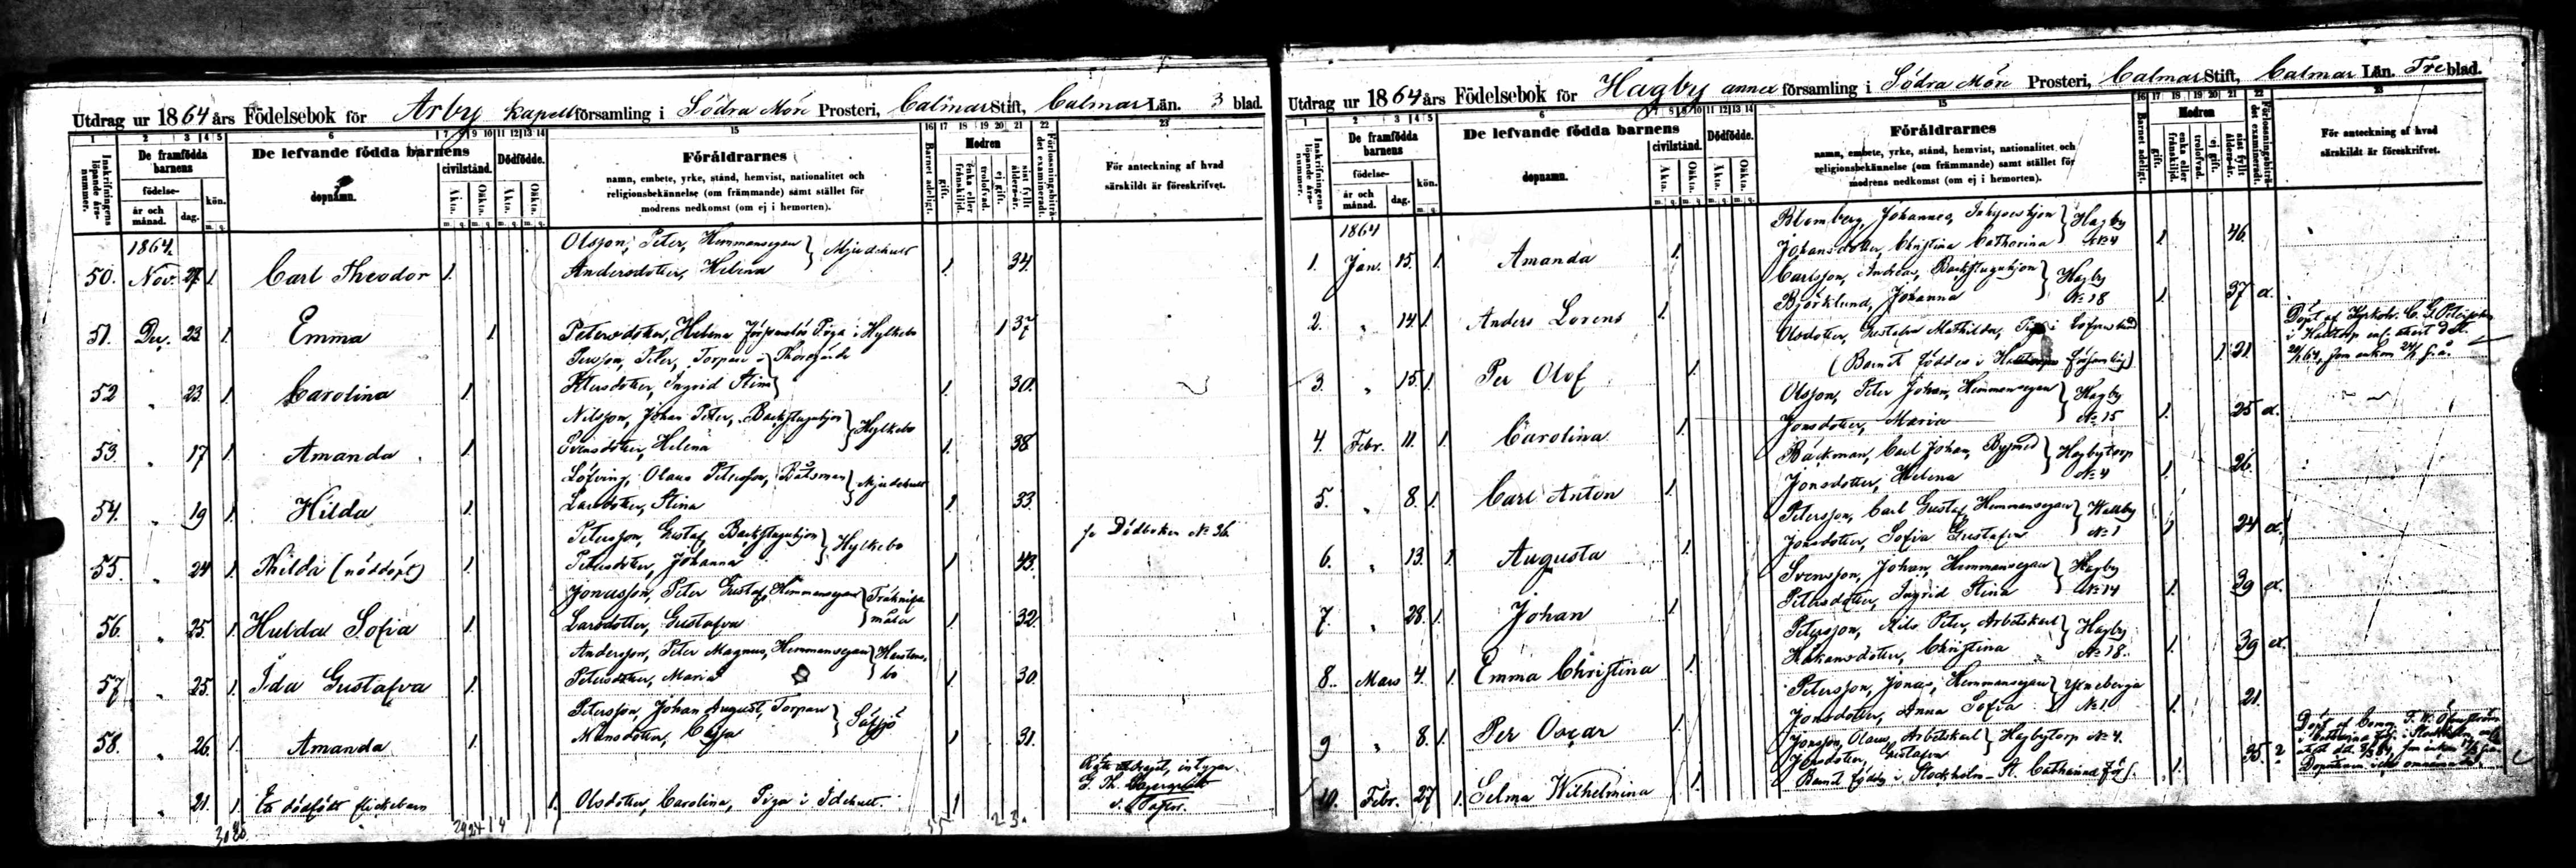 Utdrag ur 1864 års Födelsebok för Arby kapellförsamling i Södra Möre Prosteri, Calmar Stift, Calmar Län. 3 blad.
1 2 3 4 5 6 7 8 9 10 11 12 13 14 15 16 17 18 19 20 21 22 23
Inskrifningens löpande års-nummer.
De framfödda barnens
födelse-
år och månad.
dag.
kön.
m. q.
De lefvande födda barnens
dopnamn.
civilstånd.
Äkta. Oäkta.
Dödfödde.
Äkta. Oäkta.
Föräldrarnes
namn, embete, yrke, stånd, hemvist, nationalitet och
religionsbekännelse (om främmande) samt stället för
modrens nedkomst (om ej i hemorten).
Barnet adeligt.
Modren
gift.
enka eller frånskild.
trolofvad.
ej gift.
sist fyllt ålders-år.
Förlossningsbiträdet examineradt.
För anteckning af hvad
särskildt är föreskrifvet.
1864.
Olsson, Peter, Hemmansegare } Mjudehult
50. Nov. 27 1. Carl Theodor 1. Andersdotter, Helena 1. 34.
51. Dec. 23 1. Emma 1. Petersdotter, Helena Piga i Hylkebo 1 37
Persson, Peter, Torpare i
52 " 23. 1. Carolina 1. Petersdotter, Ingrid Stina } 1. 30.
Nilsson, Johan Peter, Backstuguhjon } Hylkebo
53. " 17 1. Amanda 1. Svensdotter, Helena 1. 38
Löfving, Olaus Petersson, Båtsman } Mjudehult
54. " 19 1. Hilda 1. Larsdotter, Stina 1 33.
Petersson, Gustaf, Backstuguhjon } Hylkebo
55. " 24 1. Thilda (nöddöpt) 1. Petersdotter, Johanna 1 43. se Dödboken No 36.
Jonasson, Peter Gustaf, Hemmansegare }
56. " 25. 1. Hulda Sofia 1. Larsdotter, Gustafva 1 32.
Andersson, Peter Magnus, Hemmansegare }
57. " 25. 1. Ida Gustafva 1. Petersdotter, Maria bo 1. 30.
Petersson, Johan August, Torpare }
58. " 26. 1. Amanda 1. Månsdotter, Cajsa 1 31.
" 21. 1. Ett dödfödt flickebarn 1. Olsdotter, Carolina, Piga i Idehult. 1
Rätt utdraget, intygar
G. Th.
v. Pastor.
30 28. 29 24 1 4 1 55 2 3.
Utdrag ur 1864 års Födelsebok för Hagby annex församling i Södra Möre Prosteri, Calmar Stift, Calmar Län. Tre blad.
1 2 3 4 5 6 7 8 9 10 11 12 13 14 15 16 17 18 19 20 21 22 23
Inskrifningens löpande års-nummer.
De framfödda barnens
födelse-
år och månad.
dag.
kön.
De lefvande födda barnens
dopnamn.
civilstånd.
Äkta. Oäkta.
Dödfödde.
Äkta. Oäkta.
Föräldrarnes
namn, embete, yrke, stånd, hemvist, nationalitet och
religionsbekännelse (om främmande) samt stället för
modrens nedkomst (om ej i hemorten).
Barnet adeligt.
Modren
gift.
enka eller frånskild.
trolofvad.
ej gift.
sist fyllt ålders-år.
Förlossningsbiträdet examineradt.
För anteckning af hvad
särskildt är föreskrifvet.
1864
Blomberg, Johannes, Inhyseshjon } Hagby
1. Jan. 15. 1. Amanda 1. Johansdotter, Christina Catharina No 4 1. 46.
Carlsson, Andreas, Backstuguhjon } Hagby
2. " 14. 1. Anders Lorens 1. Björklund, Johanna No 18 1. 37 d.
Olsdotter, Gustafva Mathilda, Piga i
3 " 15. 1. Per Olof 1. (Barnet föddes i församling) 1. 21.
Döpt af Kyrkoh. C. G.
i Halltorp enl. attest dat.
Olsson, Peter Johan, Hemmansegare } Hagby
4. Febr. 11. 1. Carolina 1. Jonsdotter, Maria No 15 1. 25 d.
Bäckman, Carl Johan, Bysmed } Hagbytorp
5. " 8. 1. Carl Anton 1. Jonsdotter, Helena No 4 1. 26.
Petersson, Carl Gustaf, Hemmansegare }
6. " 13. 1. Augusta 1. Jonsdotter, Sofia Gustafva No 1 1. 24 d.
Svensson, Johan, Hemmansegare } Hagby
7. " 28. 1. Johan 1. Petersdotter, Ingrid Stina No 14 1. 39 d.
Petersson, Nils Peter, Arbetskarl } Hagby
8. Mars 4. 1. Emma Christina 1. Håkansdotter, Christina No 18. 1. 39 d.
Petersson, Jonas, Hemmansegare }
9 " 8. 1. Per Oscar 1. Jonsdotter, Anna Sofia No 1. 1. 21.
Jonsson, Olaus, Arbetskarl } Hagbytorp No 4.
Jonsdotter, Gustafva
10. Febr. 27 1. Selma Wilhelmina 1. Barnet föddes i Stockholm - St. Catharina förs. 1. 35. ?
Döpt af Comm. F. W.
i Catharina förs. i Stockholm, enl.